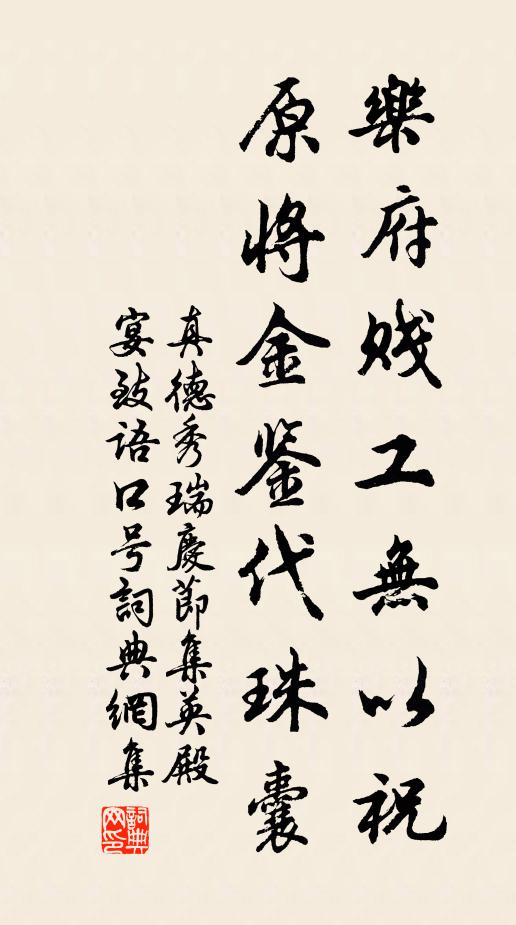 樂府賤工無以祝
原將金鉴代珠囊
真德秀瑞慶節集英殿
宴致語口号詞典網集
詞典
网印